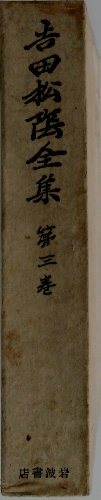 吉田松陰全集
第三巻
店書波岩